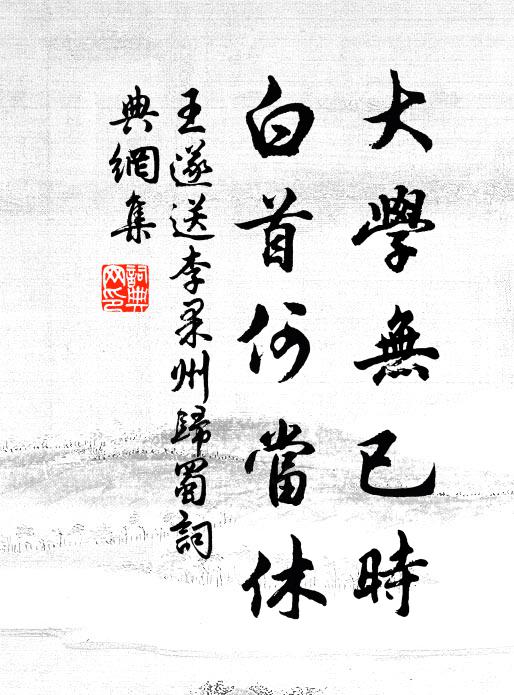 大學無已時
白首何當休
王遂送李果州歸蜀詞
典網集
詞典網印